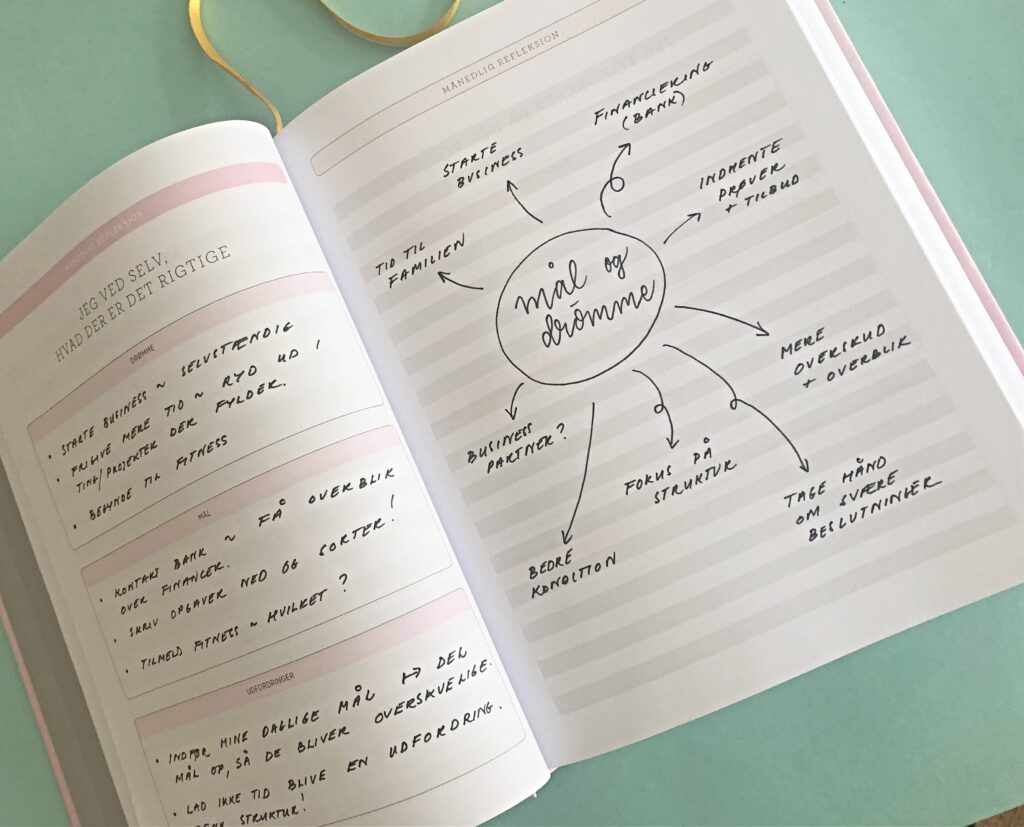 MÅNEDLIG REFLEKSION
JEG VED SELV,
HVAD DER ER DET RIGTIGE
DRØMME
• STARTE BUSINESS ~ SELVSTÆNDIG
• FRIGIVE MERE TID ~ RYD UD I
TING/PROJEKTER DER FYLDER.
• BEGYNDE TIL FITNESS
MÅL
• KONTAKT BANK ~ FÅ OVERBLIK
OVER FINANCER.
• SKRIV OPGAVER NED OG SORTER!
• TILMELD FITNESS ~ HVILKET?
UDFORDRINGER
• INDFØR MINE DAGLIGE MÅL ↦ DEL
MÅL OP, SÅ DE BLIVER OVERSKUELIGE.
• LAD IKKE TID BLIVE EN UDFORDRING.
STRUKTUR!
MÅNEDLIG REFLEKSION
STARTE
BUSINESS
FINANCIERING
(BANK)
INDHENTE
PRØVER
+ TILBUD
TID TIL
FAMILIEN
mål og
drømme
MERE
OVERSKUD
+ OVERBLIK
BUSINESS
PARTNER?
FOKUS PÅ
STRUKTUR
TAGE HÅND
OM SVÆRE
BESLUTNINGER
BEDRE
KONDITION